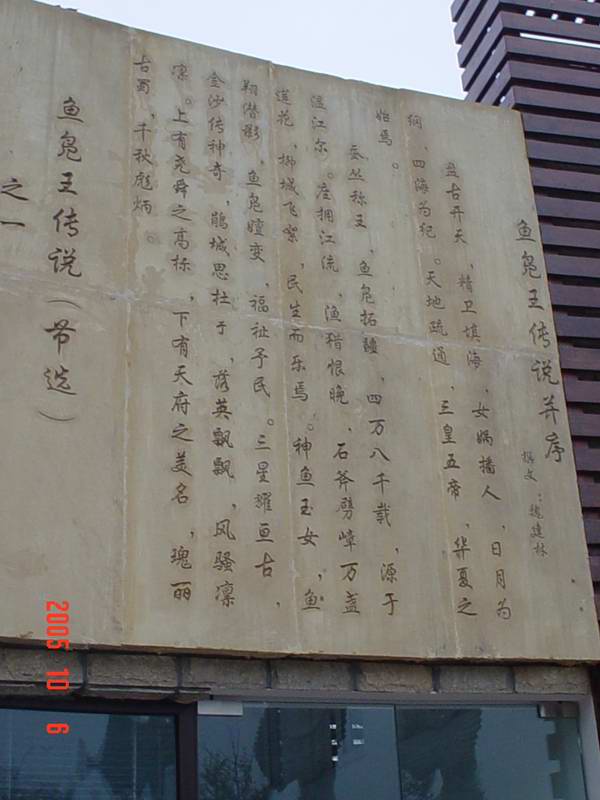 鱼凫王传说并序
撰文：魏建林
盘古开天，精卫填海，女娲播人，日月为
纲，四海为纪。天地疏通，三皇五帝，华夏之
始焉。
蚕丛称王，鱼凫拓疆，四万八千载，源于
温江尔。座拥江流，渔猎恨晚，石斧劈嶂万盏
莲花，柳城飞絮，民生而乐焉。神鱼玉女，鱼
翔潜影，鱼凫嬗变，福祉予民。三星耀亘古，
金沙传神奇，鹃城思杜于，落英飘飘，风骚凛
凛。上有尧舜之高标，下有天府之美名，瑰丽
古蜀，千秋彪炳。
鱼凫王传说（节选）
之一
2005 10 6